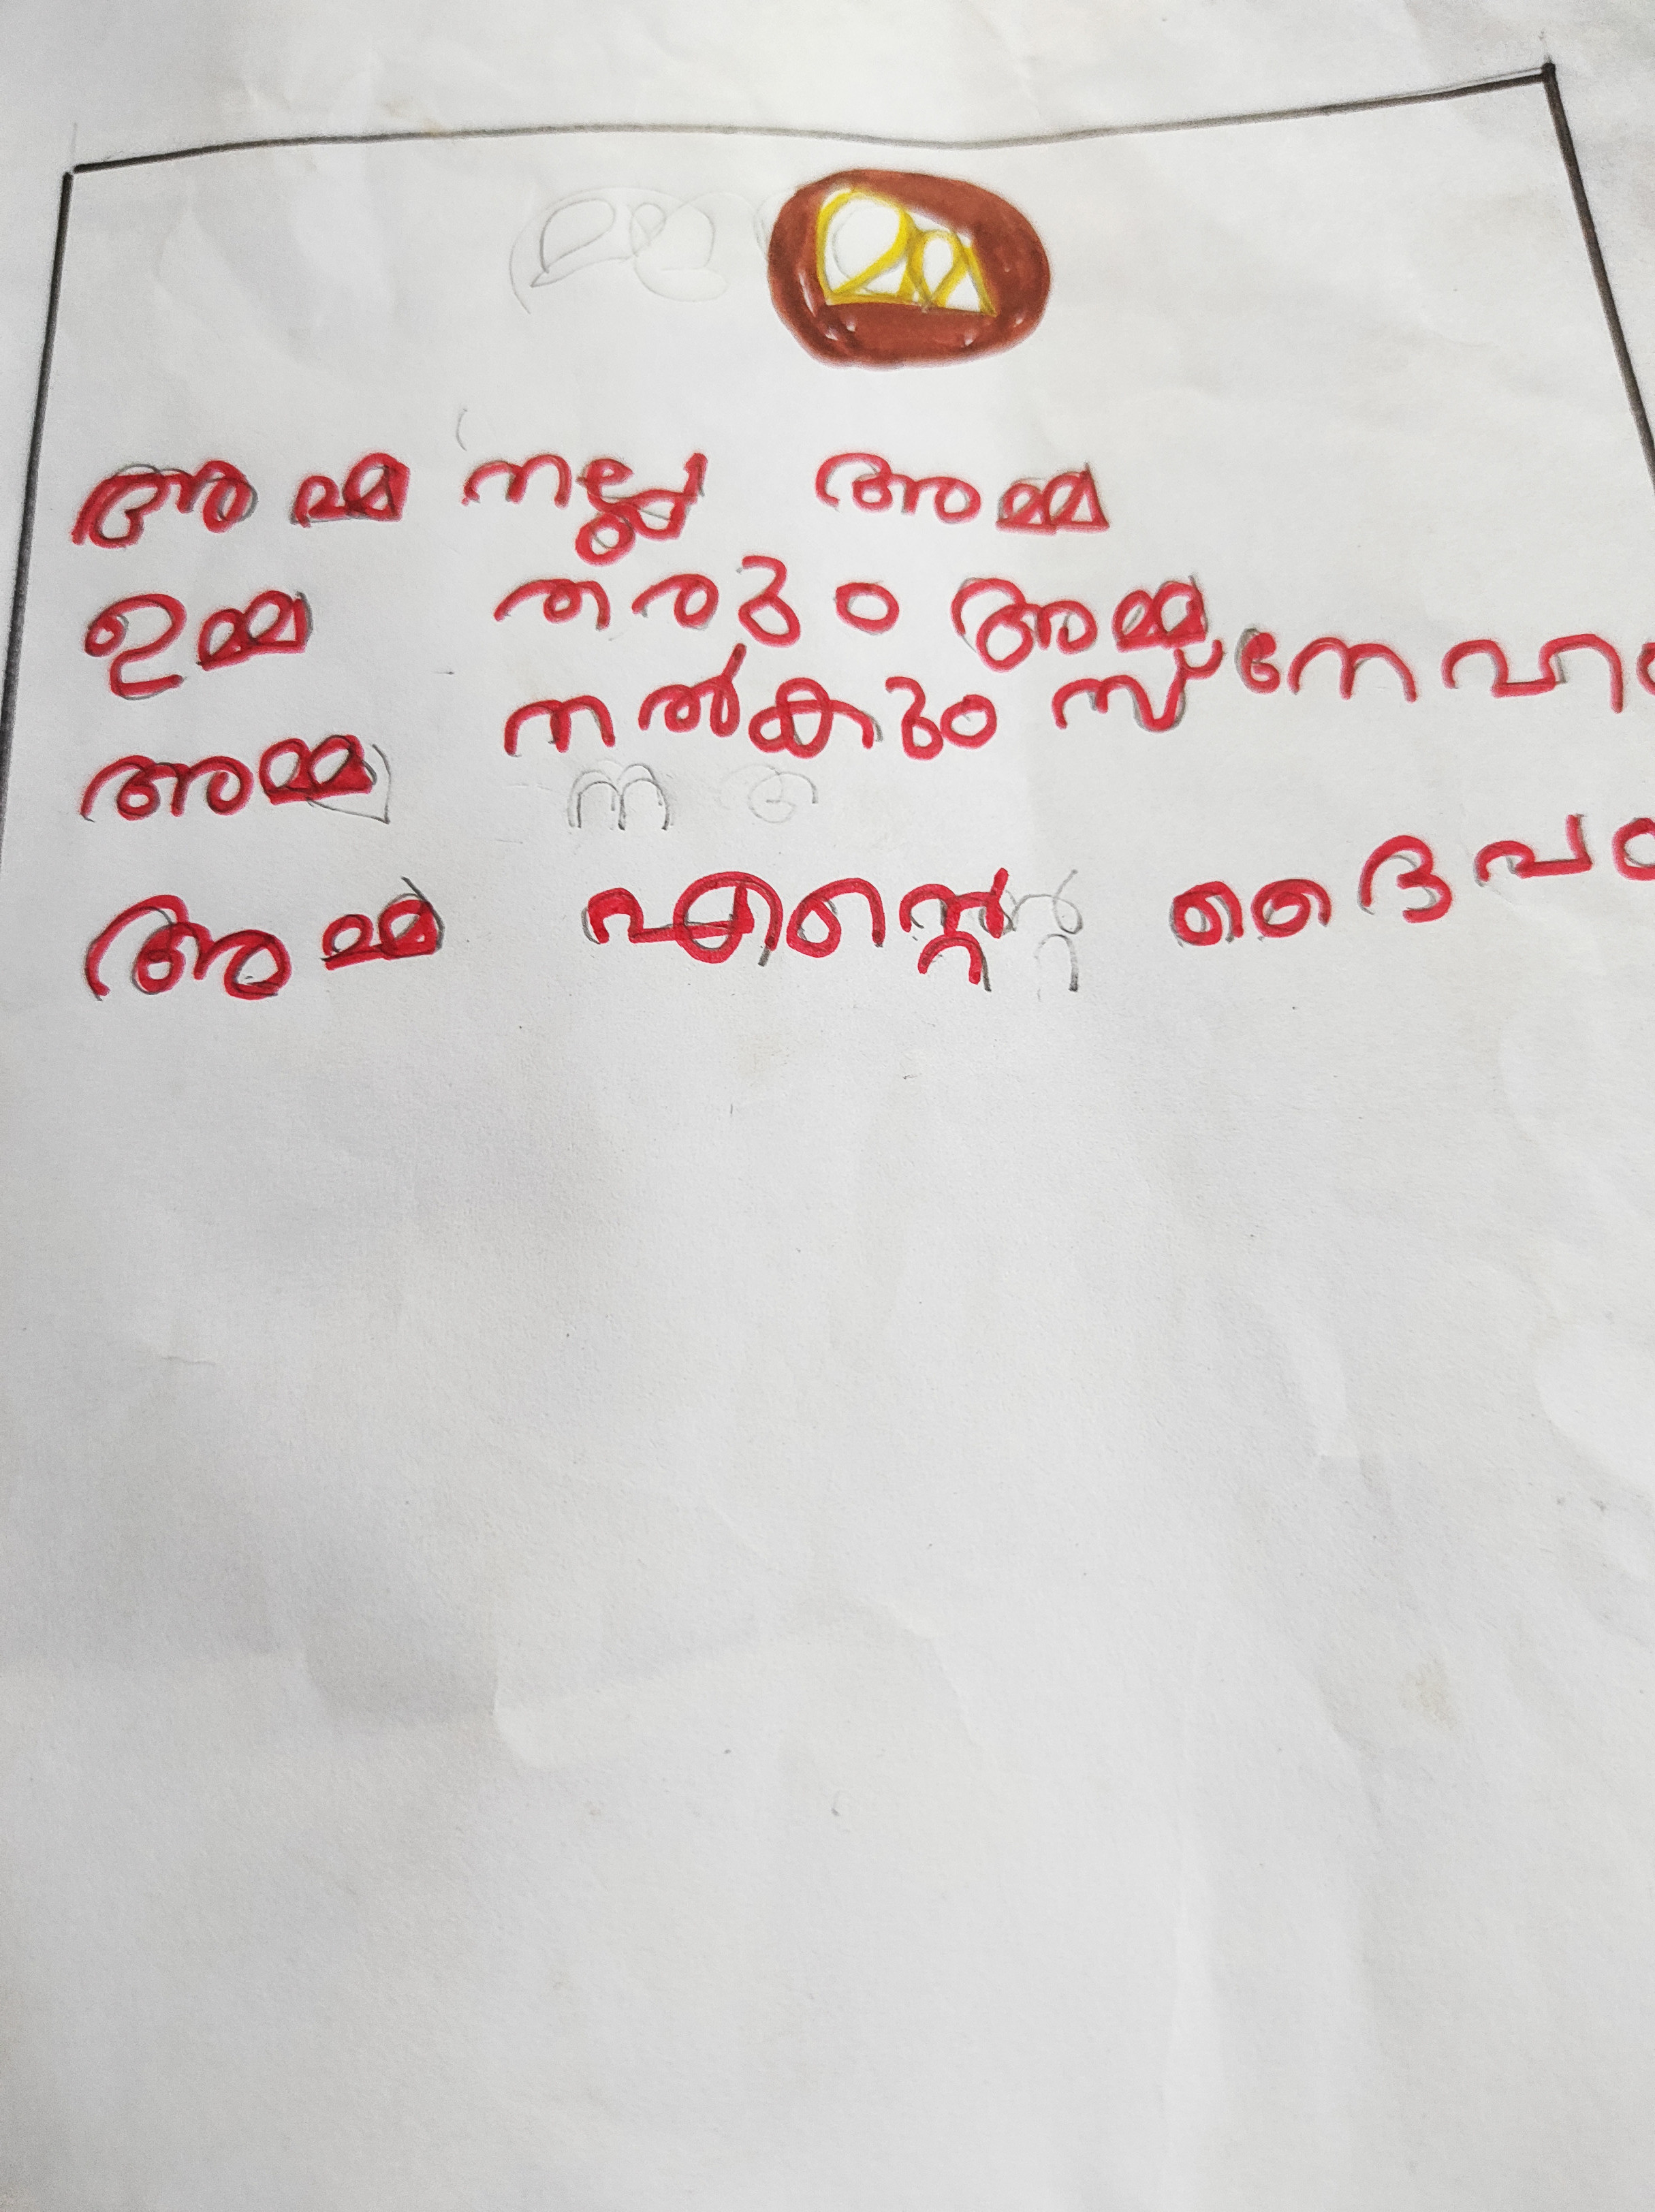 അമ്മ നല്ല അമ്മ
ഉമ്മ തരും അമ്മ
അമ്മ നൽകും സ്നേഹം
അമ്മ എന്റെ ദൈപം